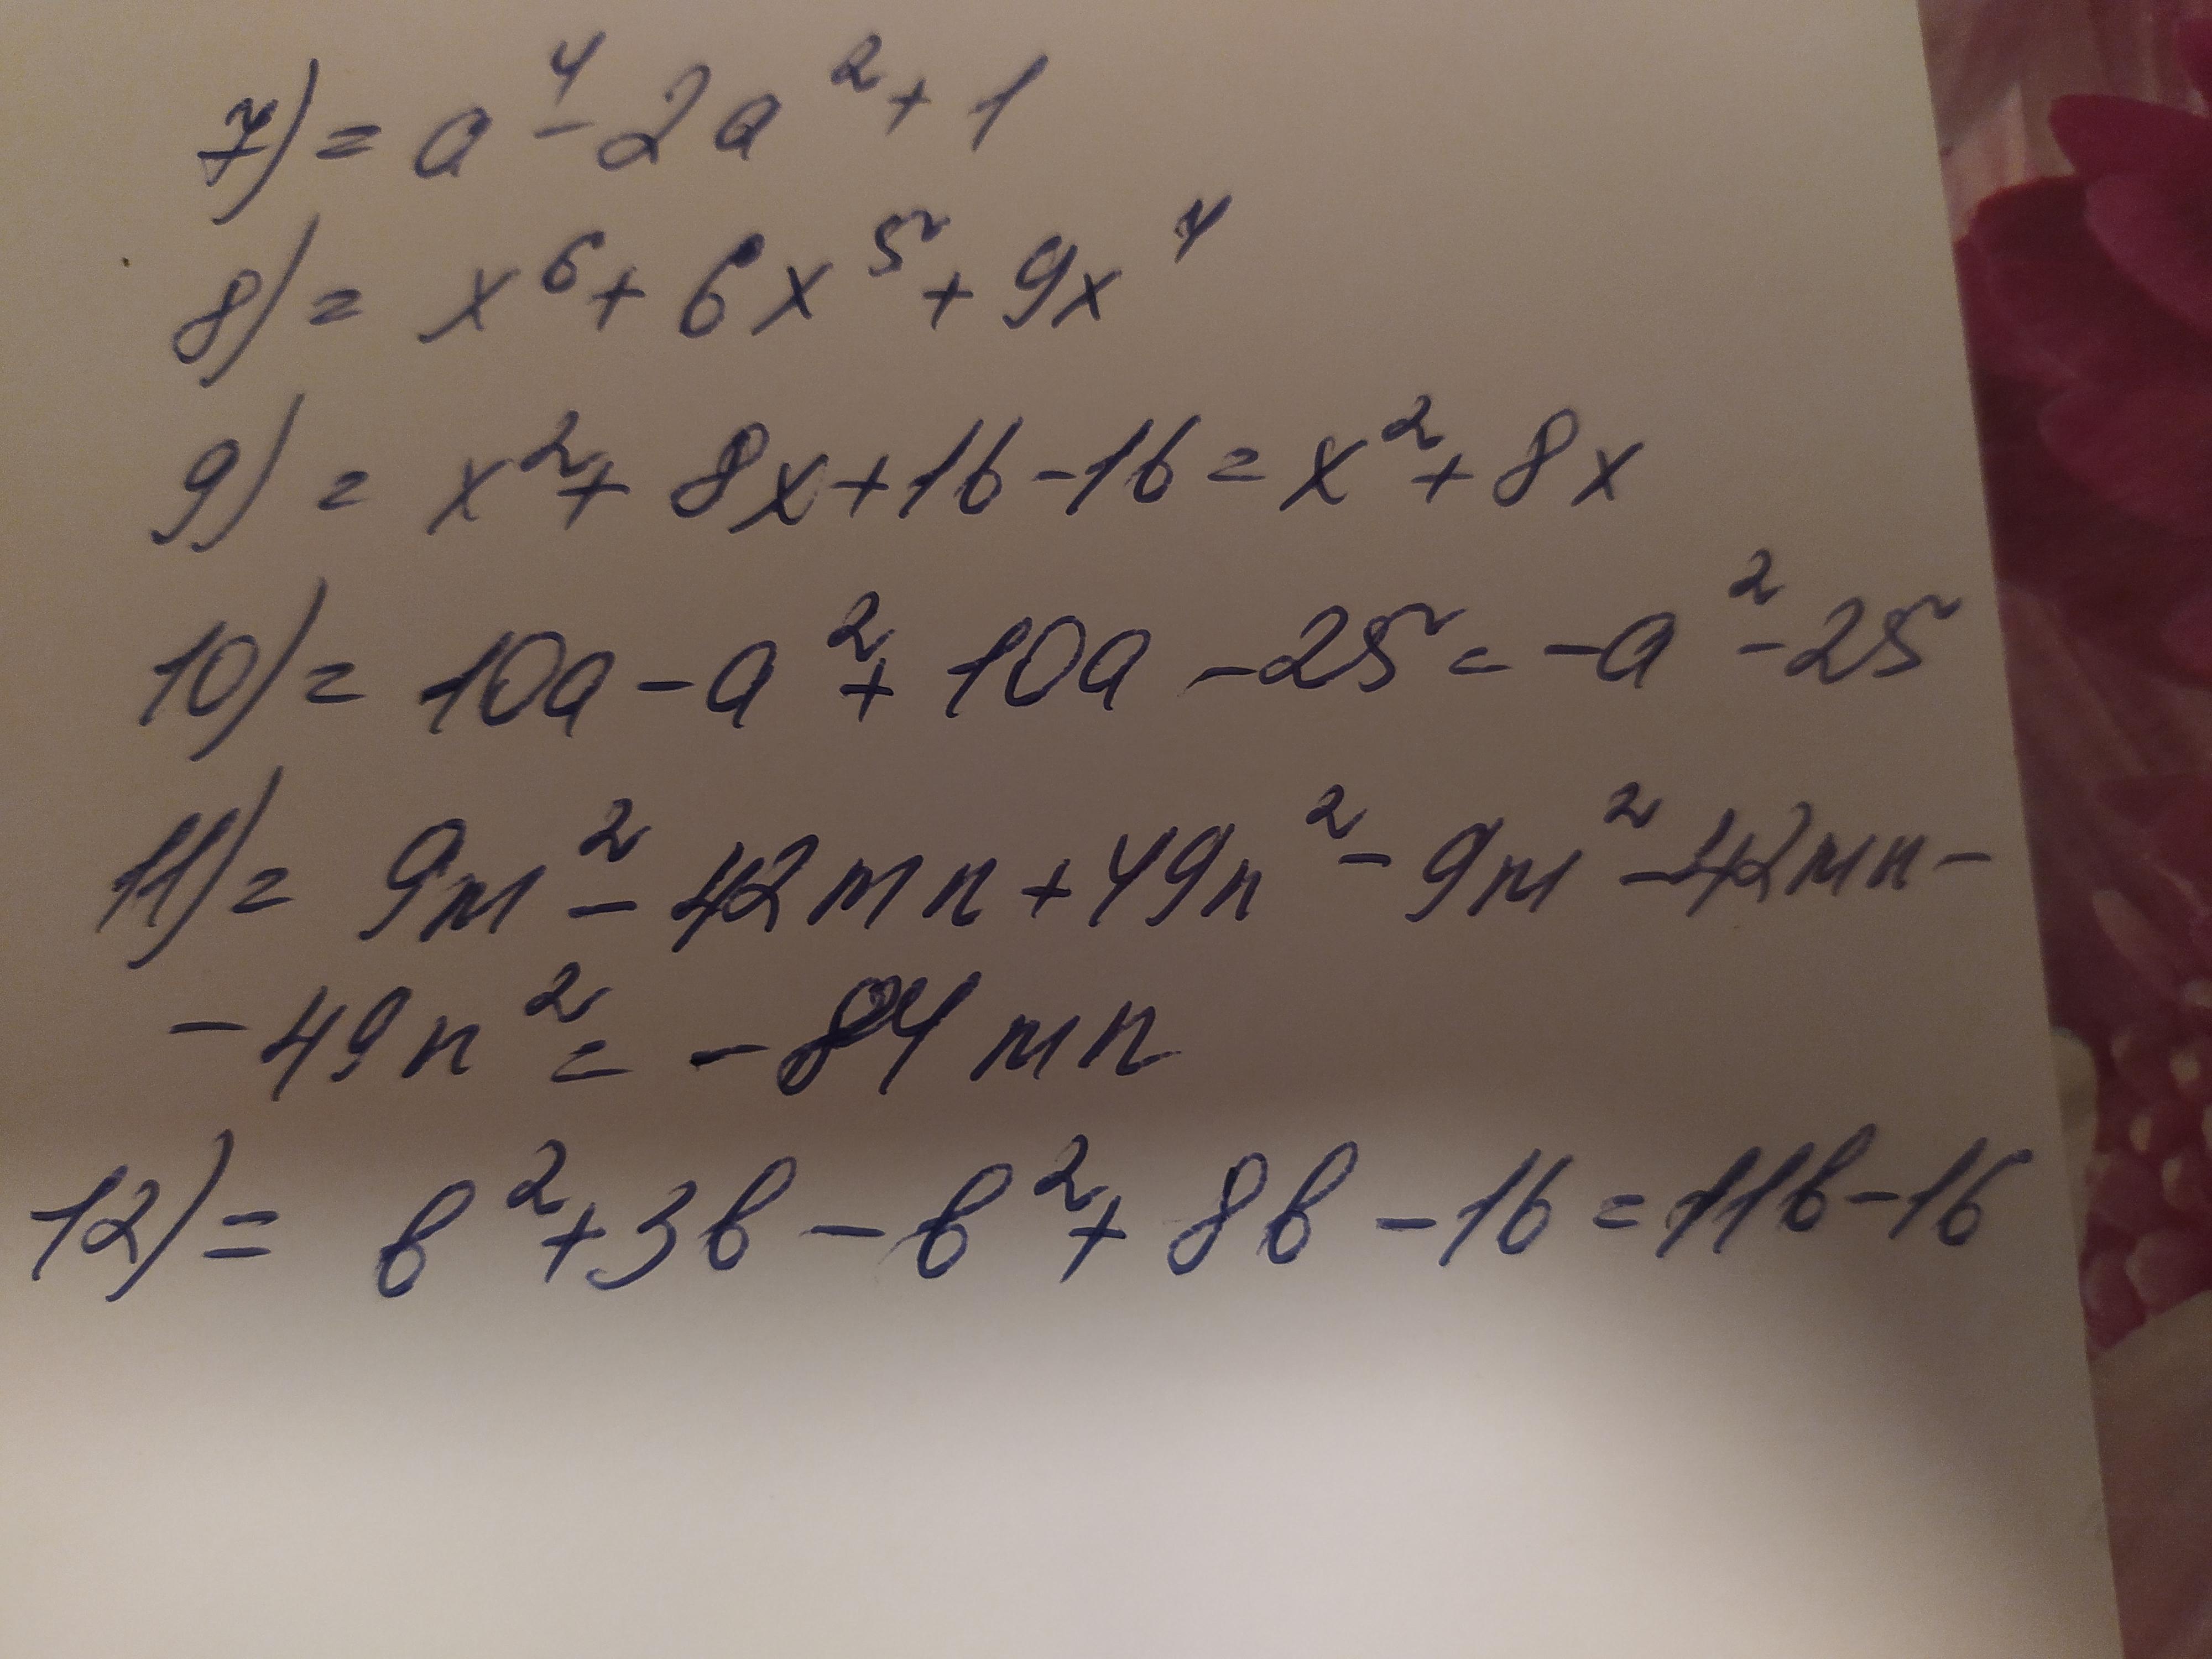 7) = a⁴ - 2a² + 1
8) = x⁶ + 6x⁵ + 9x⁴
9) = x² + 8x + 16 - 16 = x² + 8x
10) = 10a - a² + 10a - 25 = -a² - 25
11) = 9m² - 42mn + 49n² - 9m² - 42mn -
- 49n² = - 84mn
12) = b² + 3b - b² + 8b - 16 = 11b - 16